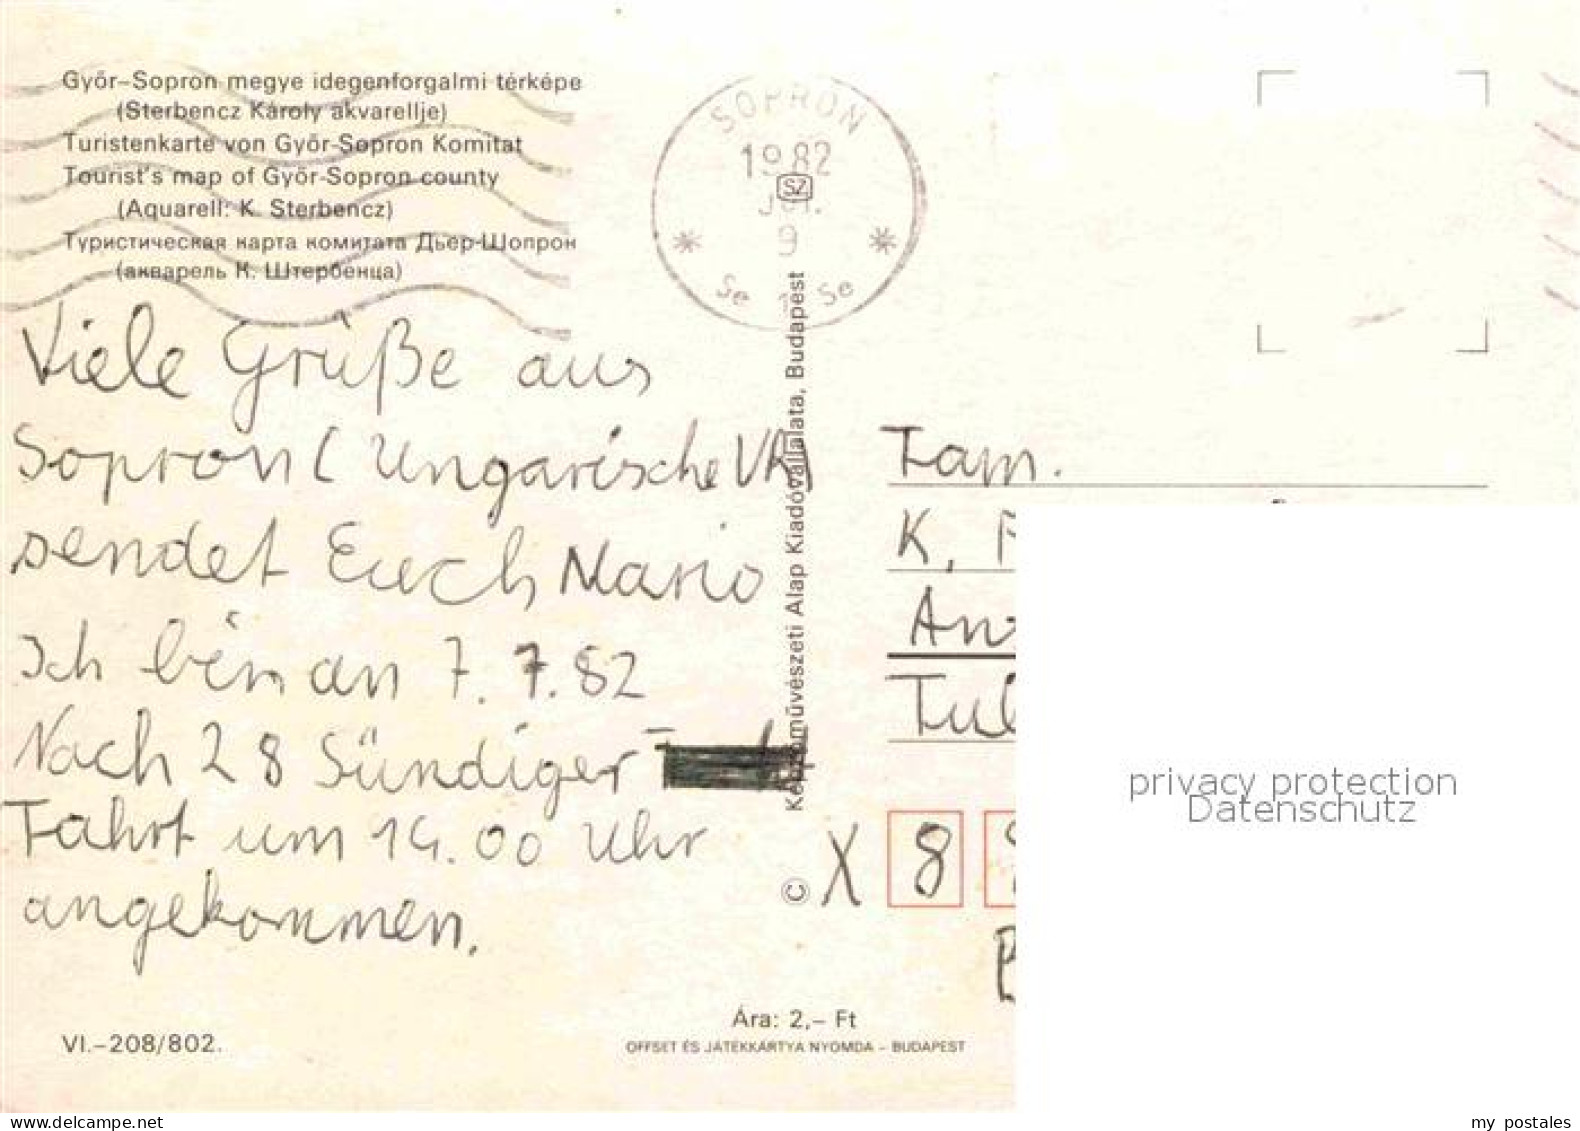 Győr–Sopron megye idegenforgalmi térképe
(Sterbencz Károly akvarellje)
Turistenkarte von Győr-Sopron Komitat
Tourist's map of Győr-Sopron county
(Aquarell: K. Sterbencz)
Туристическая карта комитата Дьер-Шопрон
(акварель К. Штербенца)
SOPRON
1982
SZ
9
Se 1 Se
Viele Grüße aus
Sopron (Ungarische VR)
sendet Euch Mario
Ich bin an 7.7.82
Nach 28 Sündiger
Fahrt um 14.00 Uhr
angekommen.
VI.–208/802.
Képzőművészeti Alap Kiadóvállalata, Budapest
©
Ára: 2,– Ft
OFFSET ÉS JÁTÉKKÁRTYA NYOMDA – BUDAPEST
Fam.
K.
X 8
privacy protection
Datenschutz
www.delcampe.net
my_postales